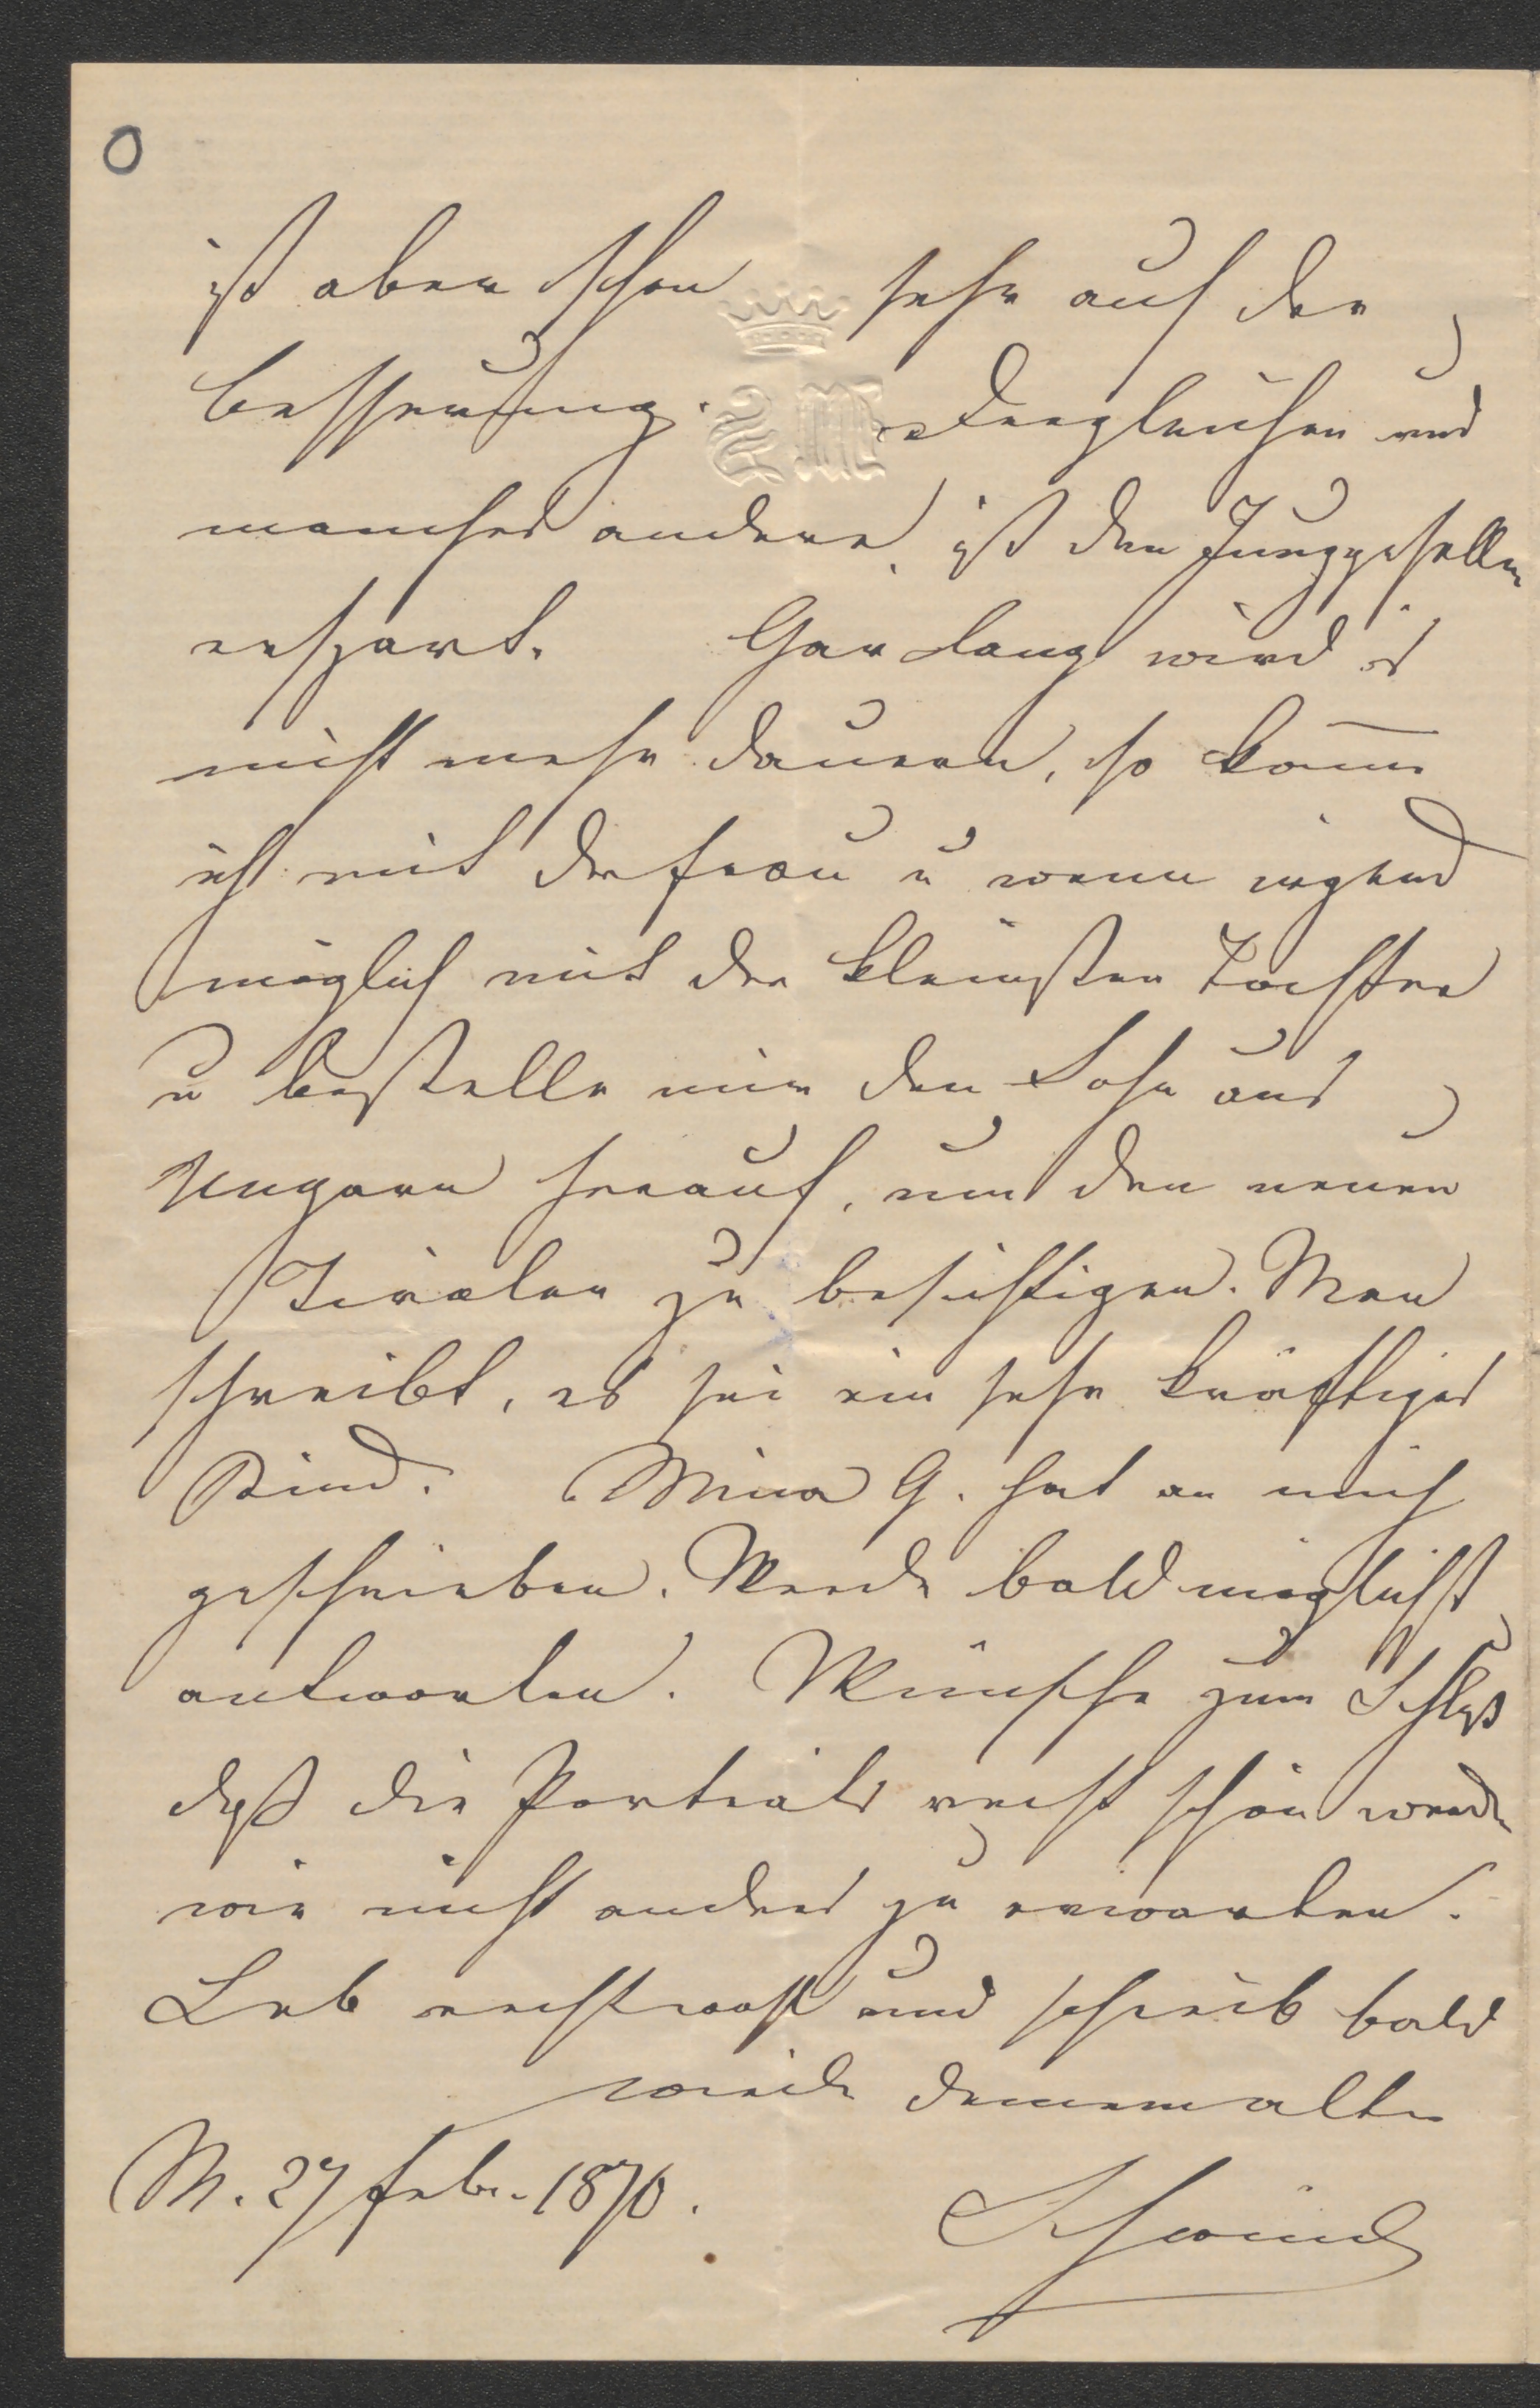 0
ist aber schon sehr auf der
Besserung. Dergleichen und
manches andere, ist den Junggesellen
erspart. Gar lang wird es
nicht mehr dauern, so kom̄e
ich mit der Frau u wenn irgend
möglich mit der kleinsten Tochter
u bestelle mir den Sohn aus
Ungarn herauf, um den neuen
Tiroler zu besichtigen. Man
schreibt, es sei ein sehr kräftiges
Kind. Mina G. hat an mich
geschrieben. Werde baldmöglichst
antworten. Wünsche zum Schluß
daß die Portraits recht schön werden
wie nicht anders zu erwarten.
Leb recht wohl und schreib bald
wieder deinem alten
M. 27 Febr. 1870.
Schwind